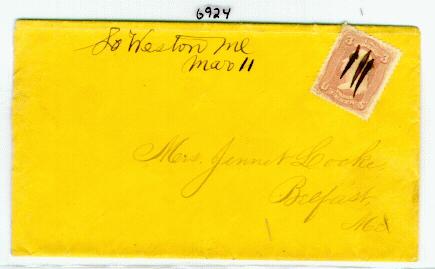 6924
So Weston Me
Mar 11
3 3
Mrs. Jennet Locke
Belfast,
Me